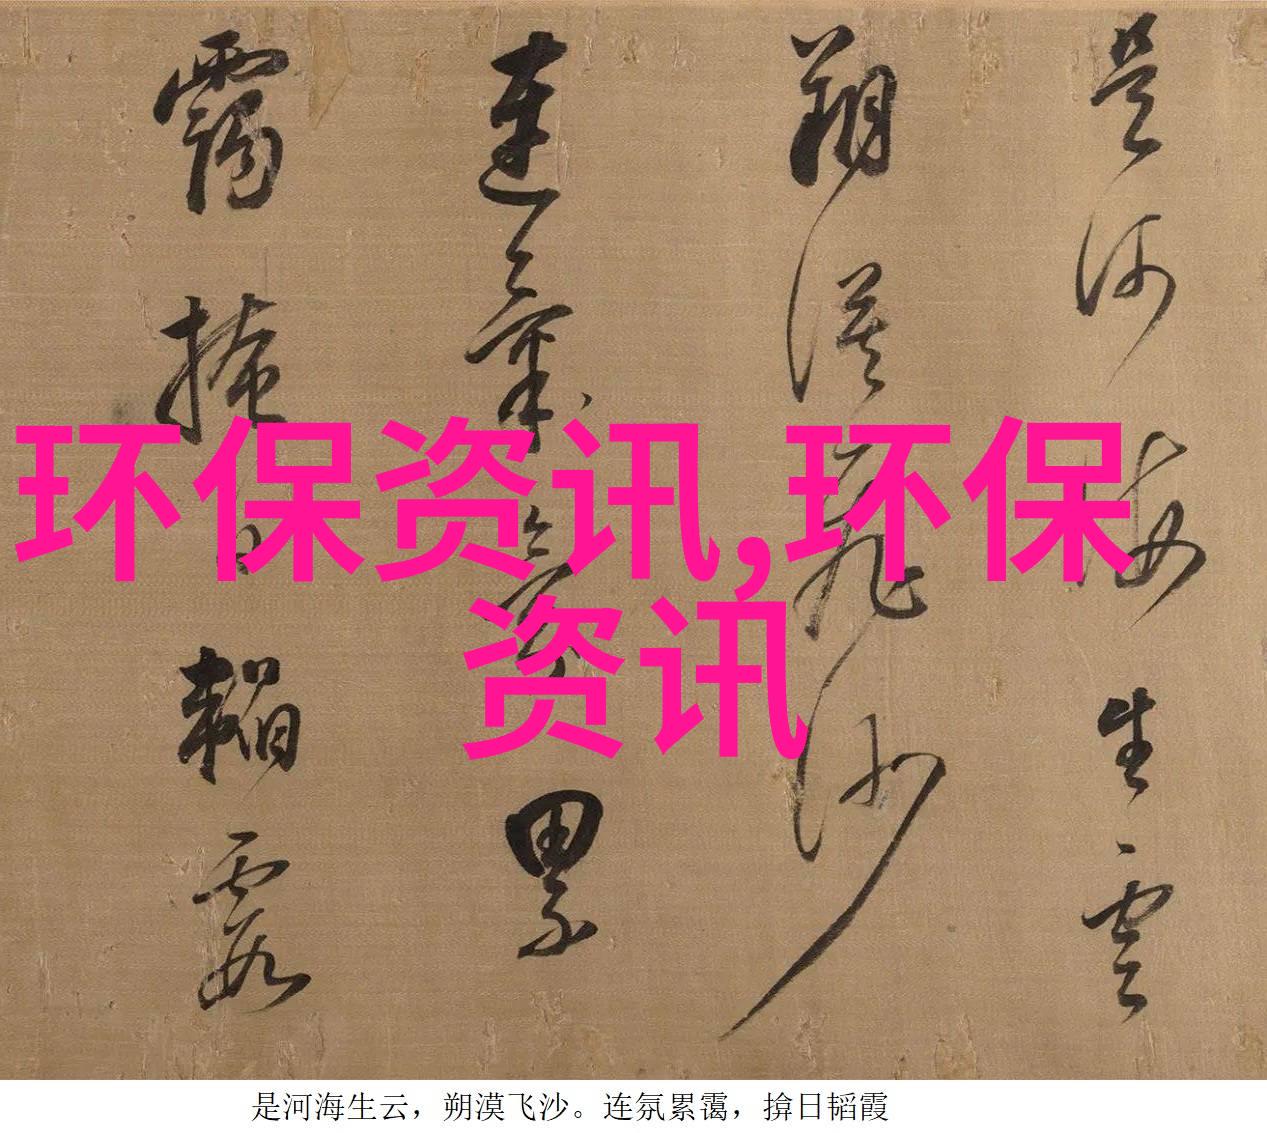 是河海生雲
朔漠飛沙
連氣累
靄揜日韜霞
环保资讯,环保
资讯
是河海生云，朔漠飞沙。连氛累霭，揜日韬霞